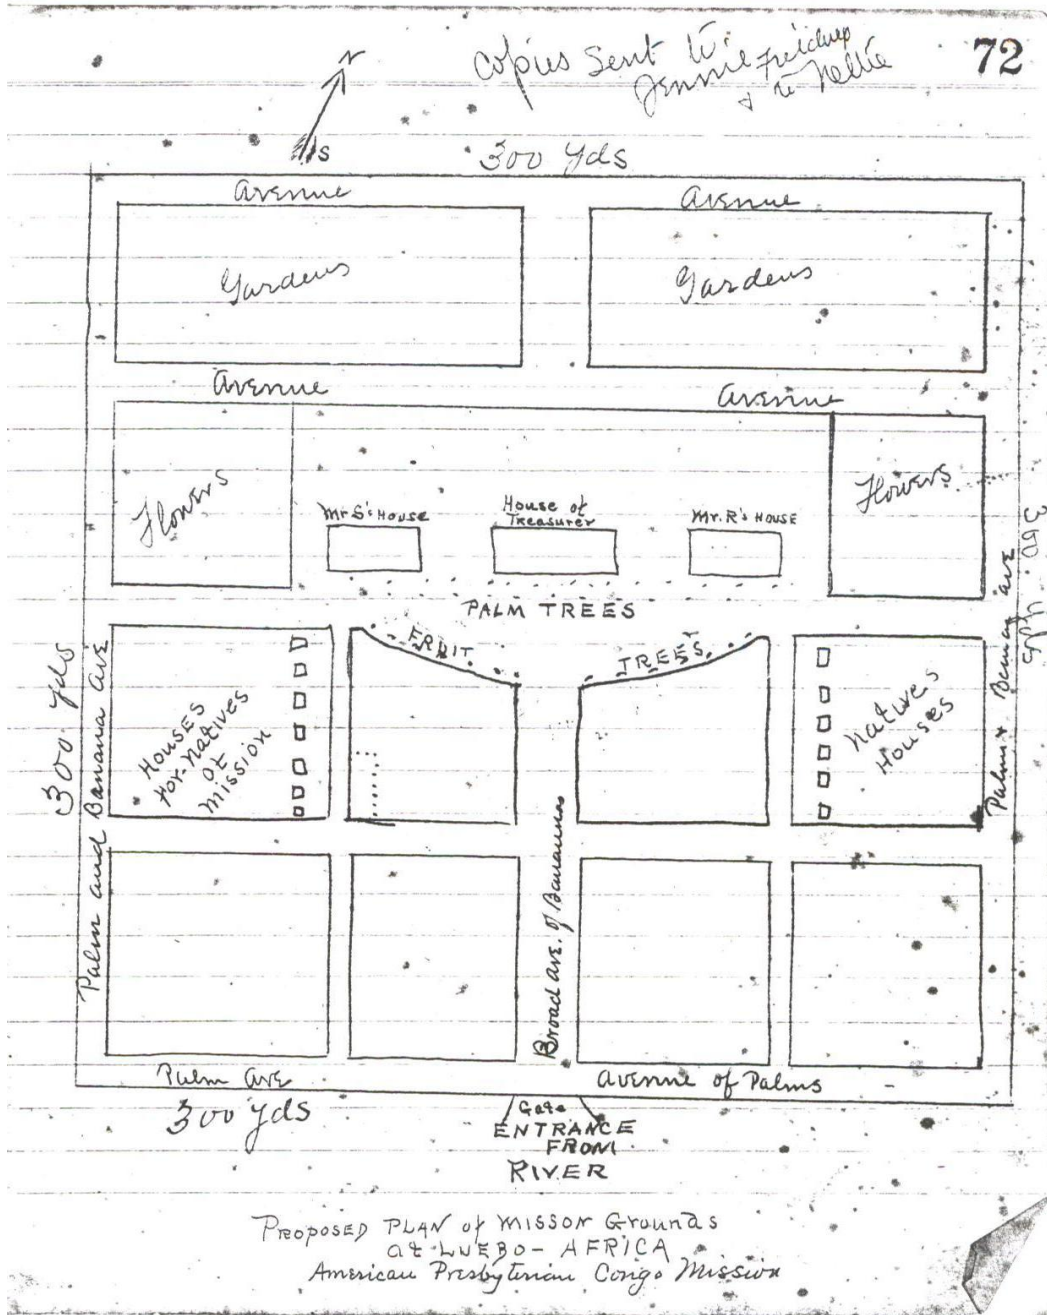 72
Copies Sent to
Jennie
& to Nellie
N
S
300 yds
Avenue
Avenue
Gardens
Gardens
Avenue
Avenue
Flowers
Flowers
Mr S's House
House of
Treasurer
Mr. R's House
PALM TREES
300 yds
FRUIT
TREES
300 yds
Palm and Banana Ave
Houses
for Natives
of
Mission
Natives
Houses
Palm & Banana ave
Broad ave. of Bananas
Palm Ave
Avenue of Palms
300 yds
Gate
ENTRANCE
FROM
RIVER
PROPOSED PLAN of MISSON Grounds
at LUEBO - AFRICA
American Presbyterian Congo Mission